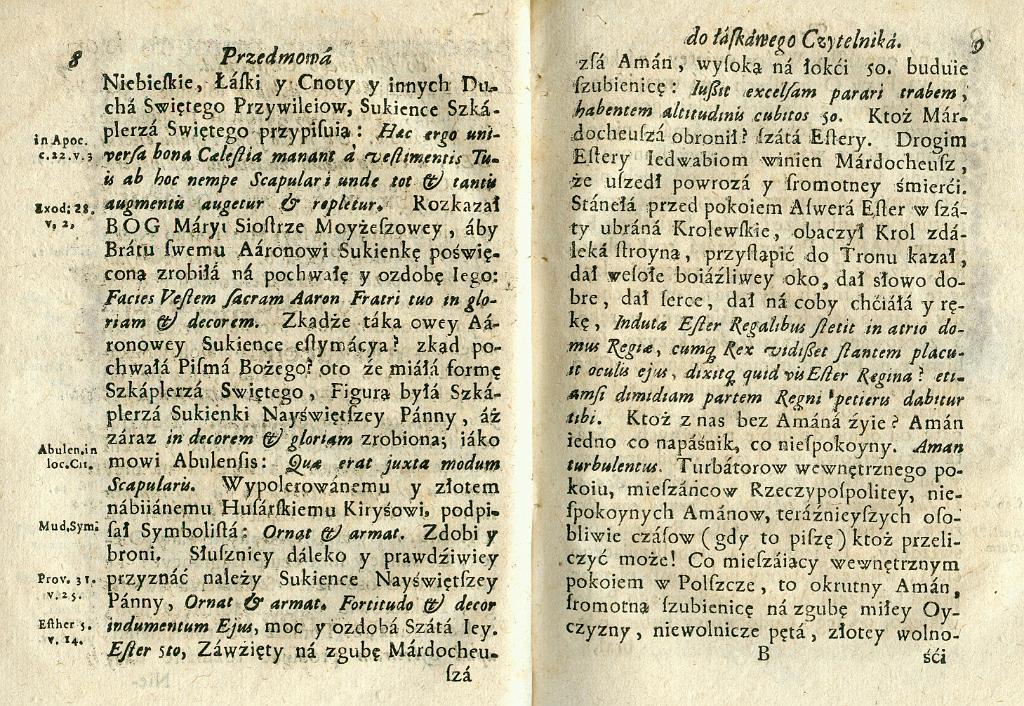 8 Przedmowá
Niebieſkie, Łáſki y Cnoty y innych Du-
chá Swiętego Przywileiow, Sukience Szká-
plerzá Swiętego przypiſuią: Hæc ergo uni-
in Apoc.
c.22.v.3
verſa bona Cæleſtia manant à veſtimentis Tu-
is ab hoc nempe Scapulari unde tot & tantis
augmentis augetur & repletur. Rozkazał
Exod: 28.
v, 2,
BOG Máryi Sioſtrze Moyżeſzowey, áby
Brátu ſwemu Aáronowi Sukienkę poświę-
coną zrobiłá ná pochwałę y ozdobę Iego:
Facies Veſtem ſacram Aaron Fratri tuo in glo-
riam & decorem. Zkądże táka owey Aá-
ronowey Sukience eſtymácya? zkąd po-
chwałá Piſmá Bożego? oto że miáłá formę
Szkáplerzá Swiętego, Figurą byłá Szká-
plerzá Sukienki Nayświętſzey Pánny, áż
záraz in decorem & gloriam zrobiona; iáko
Abulen.in
loc.Cit.
mowi Abulenſis: Quæ erat juxta modum
Scapularis. Wypolerowánemu y złotem
nábiiánemu Huſárſkiemu Kiryſowi, podpi-
Mud,Sym:
ſał Symboliſtá: Ornat & armat. Zdobi y
broni. Słuſzniey dáleko y prawdźiwiey
Prov. 31.
v.25.
przyznáć należy Sukience Nayświętſzey
Pánny, Ornat & armat. Fortitudo & decor
Eſther 5.
v. 14.
indumentum Ejus, moc y ozdobá Szátá Iey.
Eſter 5to, Záwzięty ná zgubę Márdocheu-
ſzá
do łáſkáwego Czytelniká. 9
zſá Amán, wyſoką ná łokći 50. buduie
ſzubienicę: Iuſſit excelſam parari trabem,
habentem altitudinis cubitos 50. Ktoż Már-
docheuſzá obronił? ſzátá Eſtery. Drogim
Eſtery Iedwabiom winien Márdocheuſz,
że uſzedł powrozá y ſromotney śmierći.
Stánełá przed pokoiem Aſwerá Eſter w ſzá-
ty ubráná Krolewſkie, obaczył Krol zdá-
leká ſtroyną, przyſtąpić do Tronu kazał,
dał weſołe boiáźliwey oko, dał słowo do-
bre, dał ſerce, dał ná coby chćiáłá y rę-
kę, Induta Eſter Regalibus ſtetit in atrio do-
mus Regiæ, cumq́ Rex vidiſſet ſtantem placu-
it oculis ejus, dixitq́ quid vis Eſter Regina? eti-
amſi dimidiam partem Regni petieris dabitur
tibi. Ktoż z nas bez Amáná żyie? Amán
iedno co napáśnik, co nieſpokoyny. Aman
turbulentus. Turbátorow wewnętrznego po-
koiu, mieſzáńcow Rzeczypoſpolitey, nie-
ſpokoynych Amánow, teráźnieyſzych oſo-
bliwie czáſow (gdy to piſzę) ktoż przeli-
czyć może! Co mieſzáiący wewnętrznym
pokoiem w Polſzcze, to okrutny Amán,
ſromotną ſzubienicę ná zgubę miłey Oy-
czyzny, niewolnicze pętá, złotey wolno-
B śći